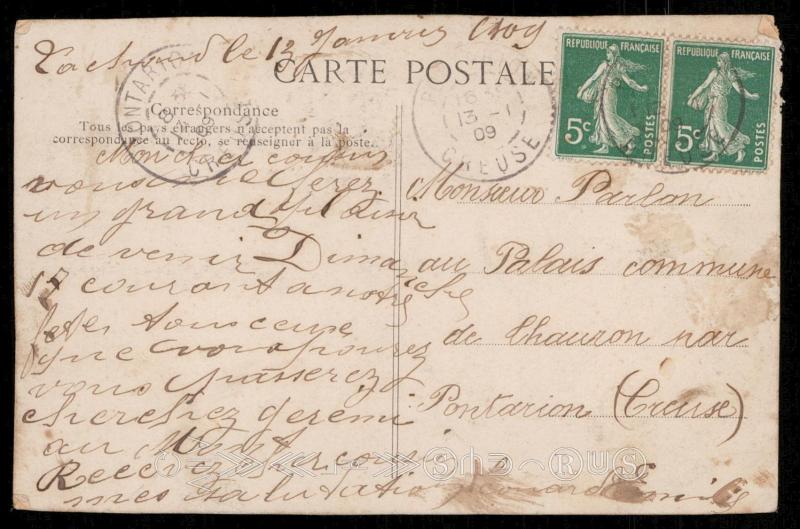 le 13 Janvier 1909
CARTE POSTALE
Correspondance
Tous les pays étrangers n'acceptent pas la
correspondance au recto, se renseigner à la poste.
RÉPUBLIQUE FRANÇAISE
5c
POSTES
RÉPUBLIQUE FRANÇAISE
5c
POSTES
PONTARION
CREUSE
16
13 - 1
09
CREUSE
Mon cher cousin
vous me ferez
un grand plaisir
de venir Dimanche
17 courant a notre
fete tous ceux
que vous pourez
vous passerez
cherchez geremi
au
Recevez
mes salutation
Monsieur Parlon
au Palais commune
de Chauron par
Pontarion (Creuse)